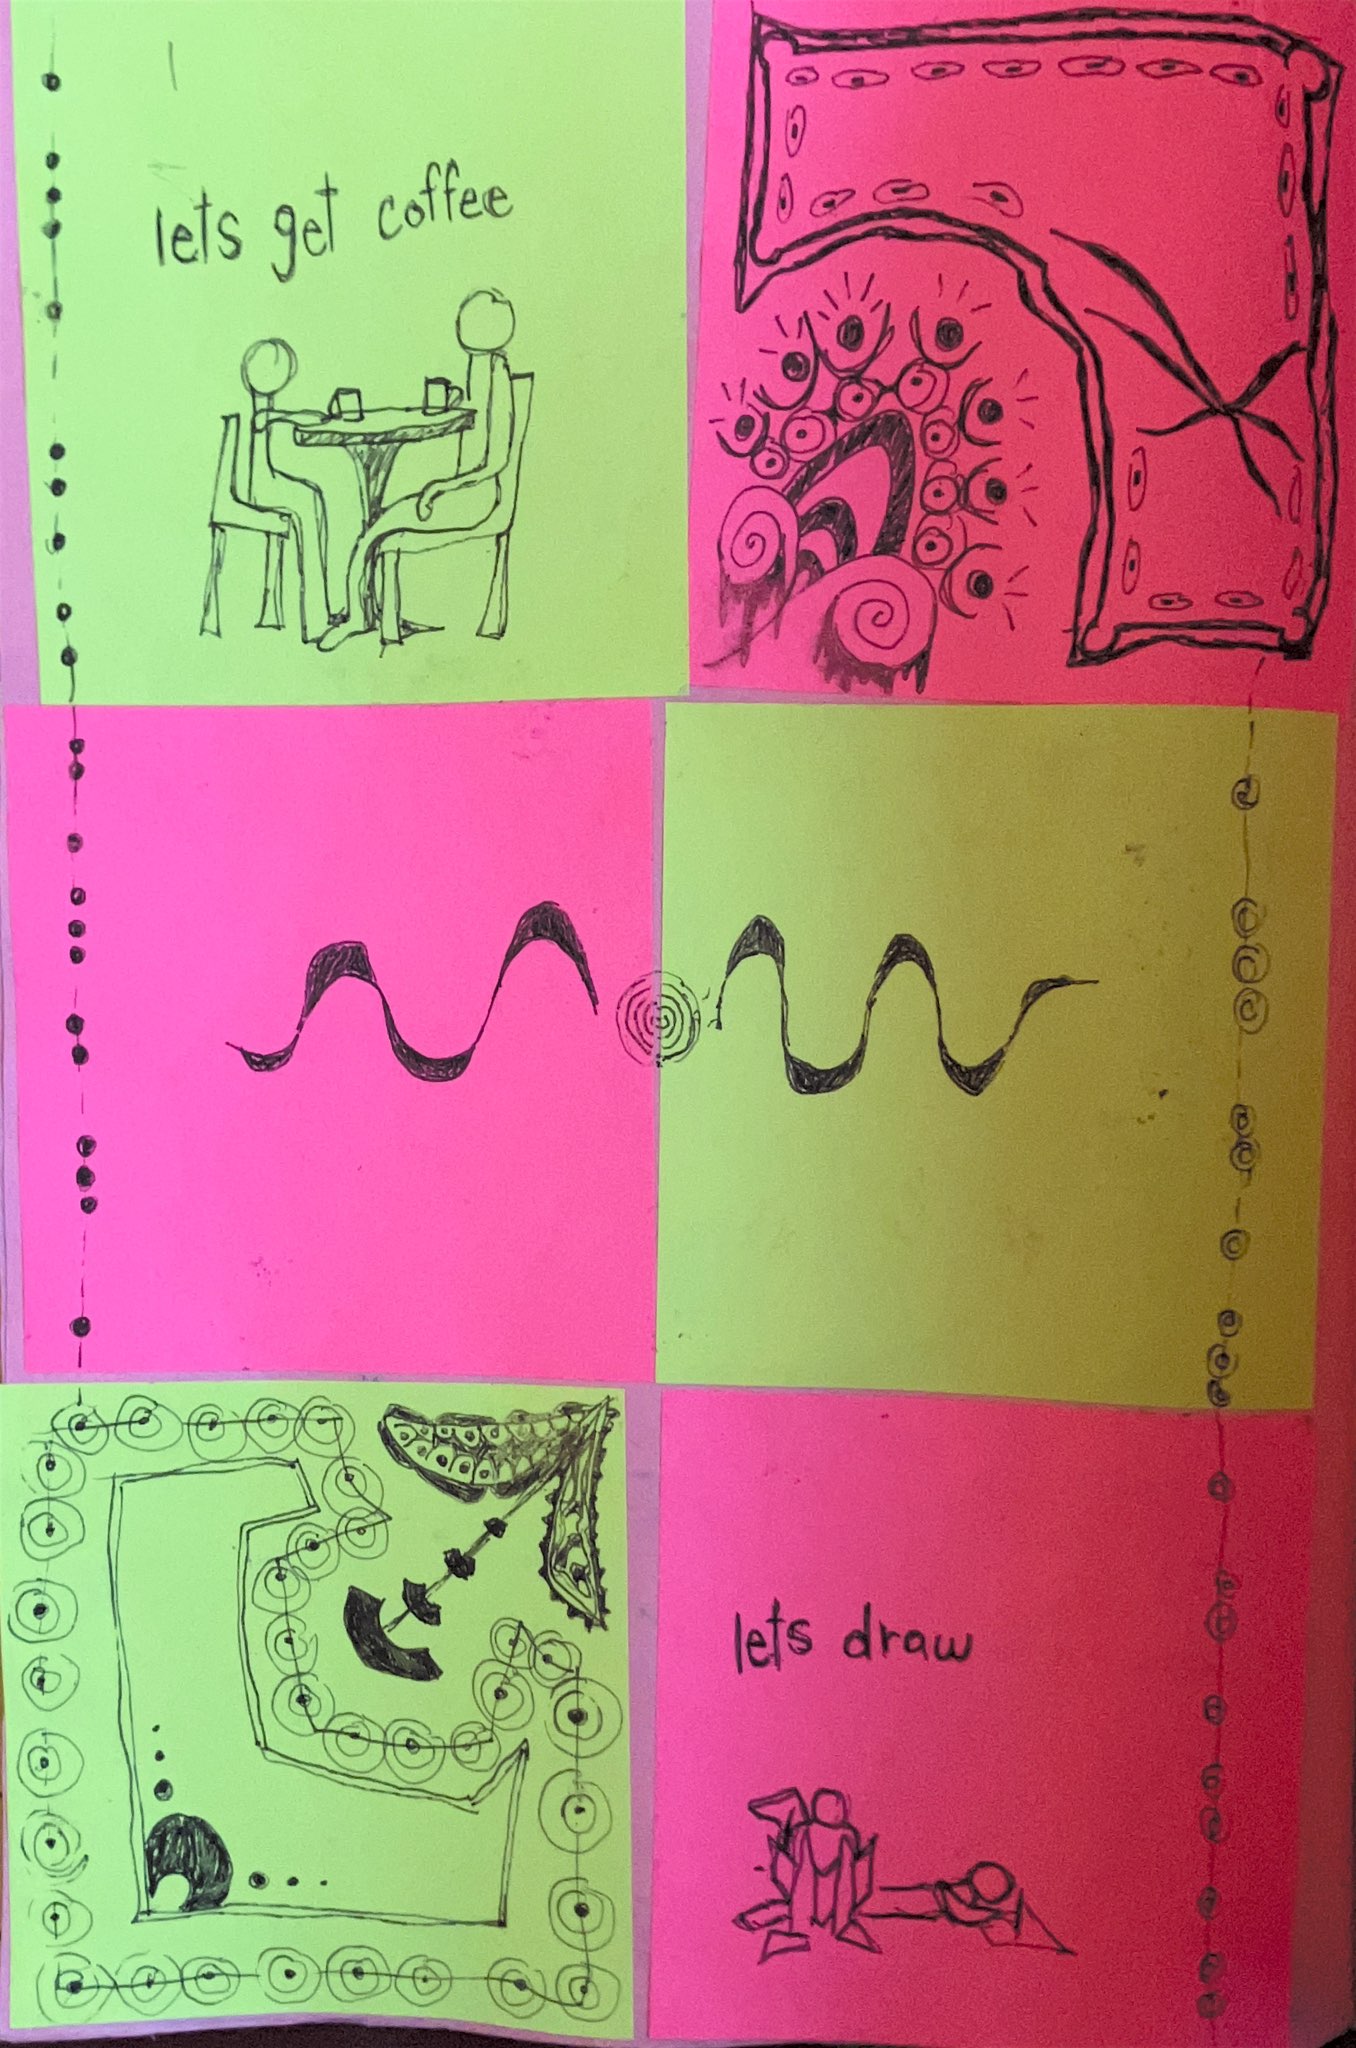 lets get coffee
lets draw